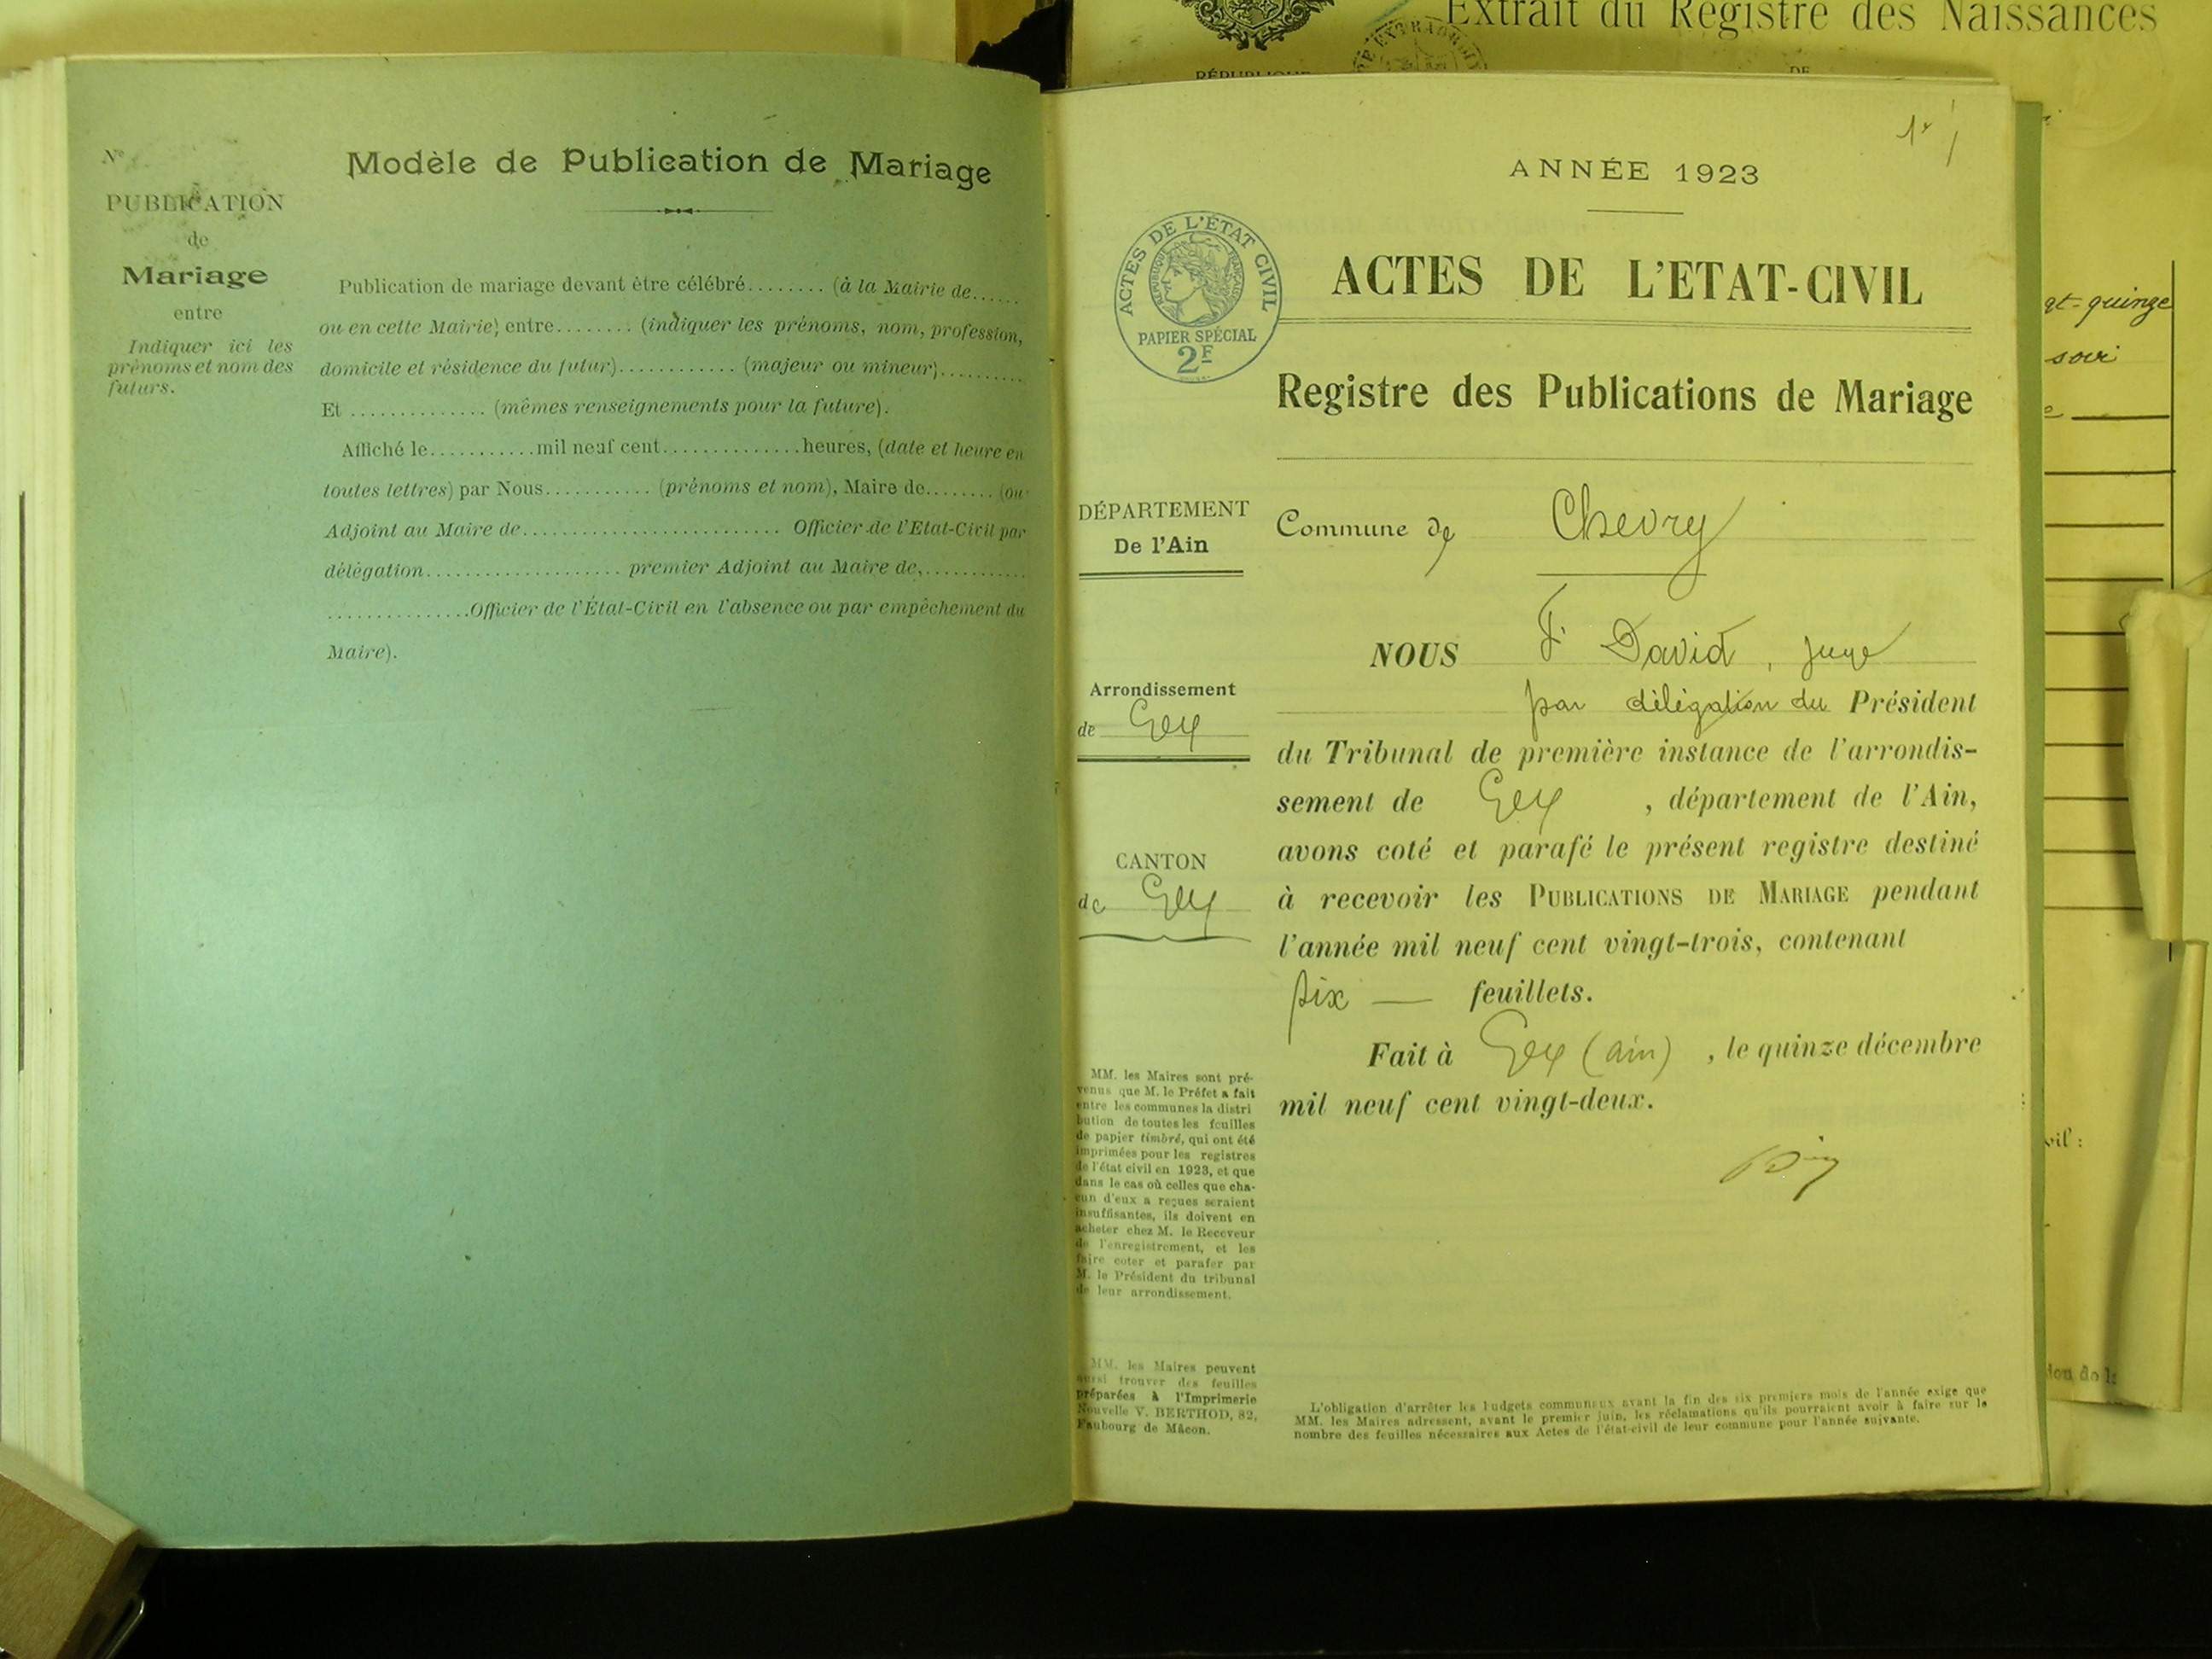 Extrait du Registre des Naissances
DE
N°
PUBLICATION
de
Mariage
entre
Indiquer ici les
prénoms et nom des
futurs.
Modèle de Publication de Mariage
Publication de mariage devant être célébré........ (à la Mairie de......
ou en cette Mairie) entre........ (indiquer les prénoms, nom, profession,
domicile et résidence du futur)............ (majeur ou mineur)..........
Et .............. (mêmes renseignements pour la future).
Affiché le...........mil neuf cent..............heures, (date et heure en
toutes lettres) par Nous........... (prénoms et nom), Maire de........ (ou
Adjoint au Maire de.......................... Officier de l'Etat-Civil par
délégation.................... premier Adjoint au Maire de,............
...............Officier de l'État-Civil en l'absence ou par empêchement du
Maire).
ANNÉE 1923
ACTES DE L'ÉTAT CIVIL
RÉPUBLIQUE FRANÇAISE
PAPIER SPÉCIAL
2F
ACTES DE L'ETAT-CIVIL
Registre des Publications de Mariage
DÉPARTEMENT
De l'Ain
Arrondissement
de Gex
CANTON
de Gex
Commune de Chevry
NOUS F. David, juge
par délégation du Président
du Tribunal de première instance de l'arrondis-
sement de Gex , département de l'Ain,
avons coté et parafé le présent registre destiné
à recevoir les PUBLICATIONS DE MARIAGE pendant
l'année mil neuf cent vingt-trois, contenant
six — feuillets.
Fait à Gex (ain) , le quinze décembre
mil neuf cent vingt-deux.
MM. les Maires sont pré-
venus que M. le Préfet a fait
entre les communes la distri
bution de toutes les feuilles
de papier timbré, qui ont été
imprimées pour les registres
de l'état civil en 1923, et que
dans le cas où celles que cha-
cun d'eux a reçues seraient
insuffisantes, ils doivent en
acheter chez M. le Receveur
de l'enregistrement, et les
faire coter et parafer par
M. le Président du tribunal
de leur arrondissement.
MM. les Maires peuvent
aussi trouver des feuilles
préparées à l'Imprimerie
Nouvelle V. BERTHOD, 82,
Faubourg de Mâcon.
L'obligation d'arrêter les budgets communaux avant la fin des six premiers mois de l'année exige que
MM. les Maires adressent, avant le premier juin, les réclamations qu'ils pourraient avoir à faire sur le
nombre des feuilles nécessaires aux Actes de l'état-civil de leur commune pour l'année suivante.
gt-quinze
soir
vil :